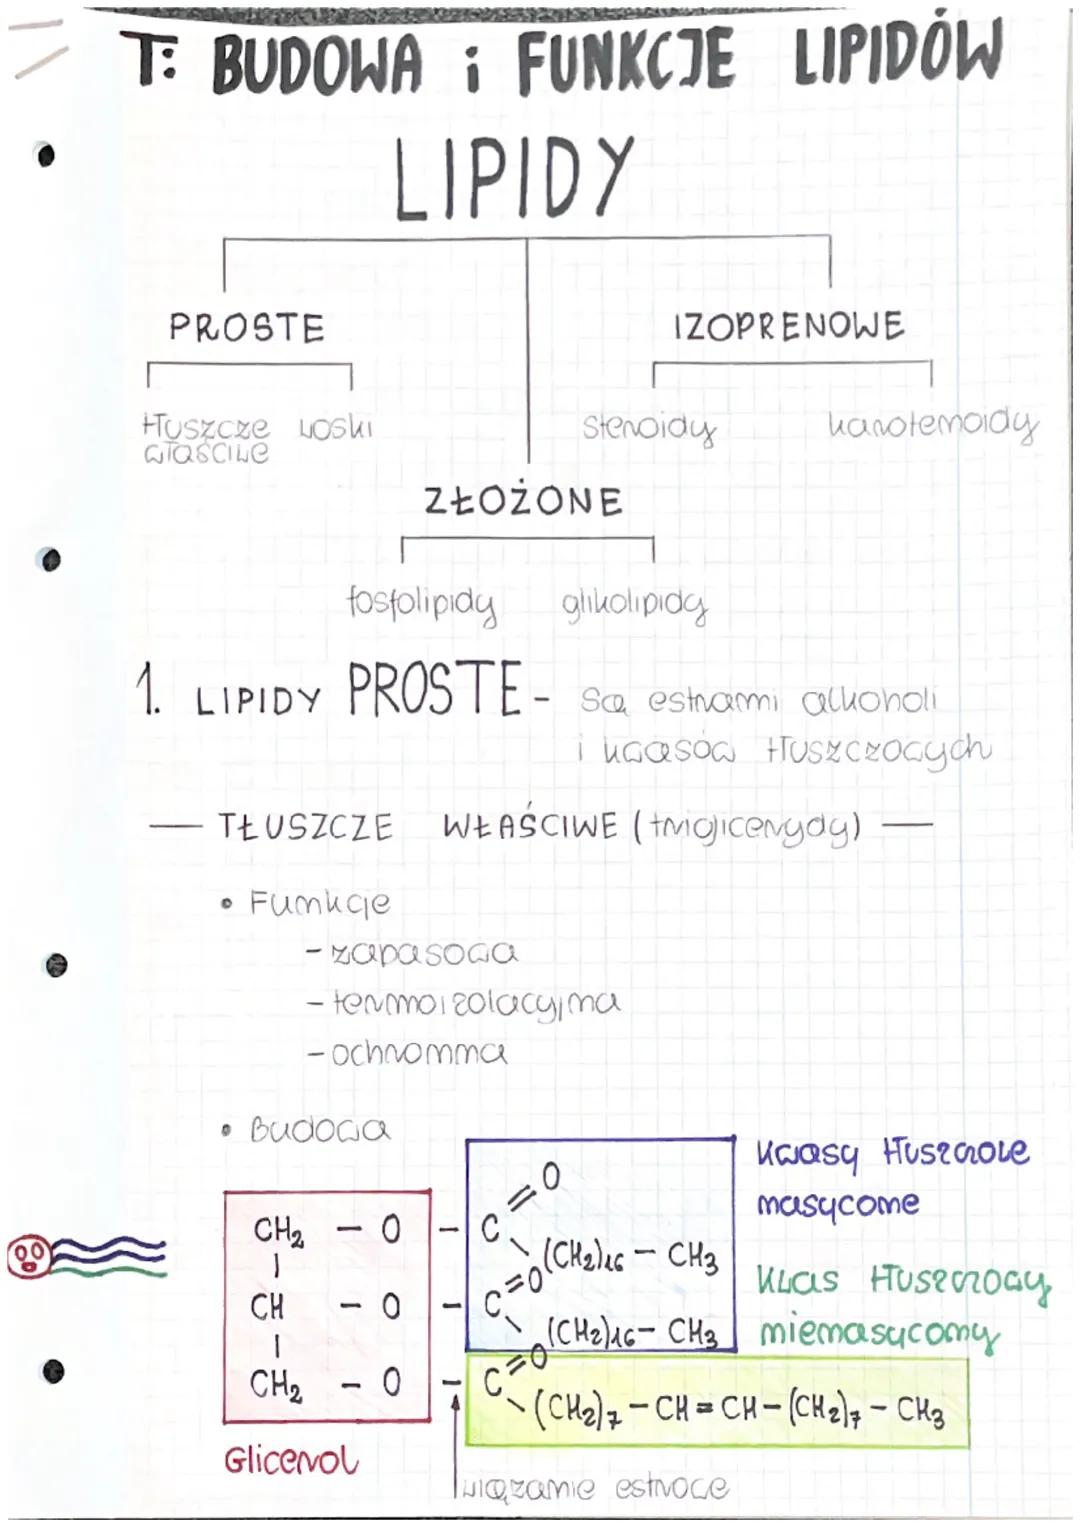 T: BUDOWA i FUNKCJE LIPIDÓW
LIPIDY
PROSTE IZOPRENOWE
tłuszcze woski steroidy karotenoidy
właściwe
ZŁOŻONE
fosfolipidy glikolipidy
1. LIPIDY PROSTE - Są estrami alkoholi
i kwasów tłuszczowych
— TŁUSZCZE WŁAŚCIWE (triglicerydy) —
• Funkcje
- zapasowa
- termoizolacyjna
- ochronna
• Budowa
kwasy tłuszczowe
nasycone
CH₂ - O - C =O
(CH₂)₁₆ - CH₃
kwas tłuszczowy
nienasycony
CH - O - C =O
(CH₂)₁₆ - CH₃
CH₂ - O - C =O
(CH₂)₇ - CH = CH - (CH₂)₇ - CH₃
Glicerol
wiązanie estrowe